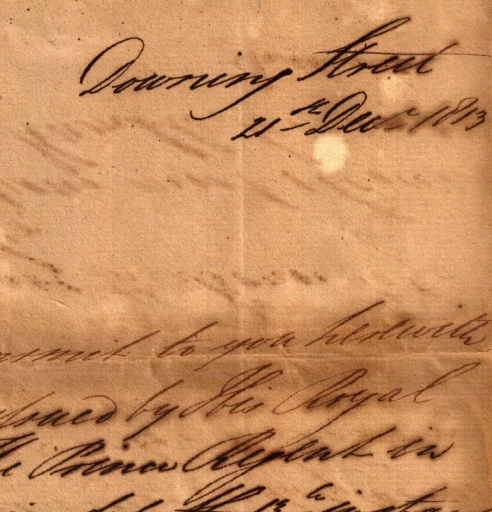 Downing Street
21st Decr 1813
ansmit to you herewith
ssued by His Royal
The Prince Regent in